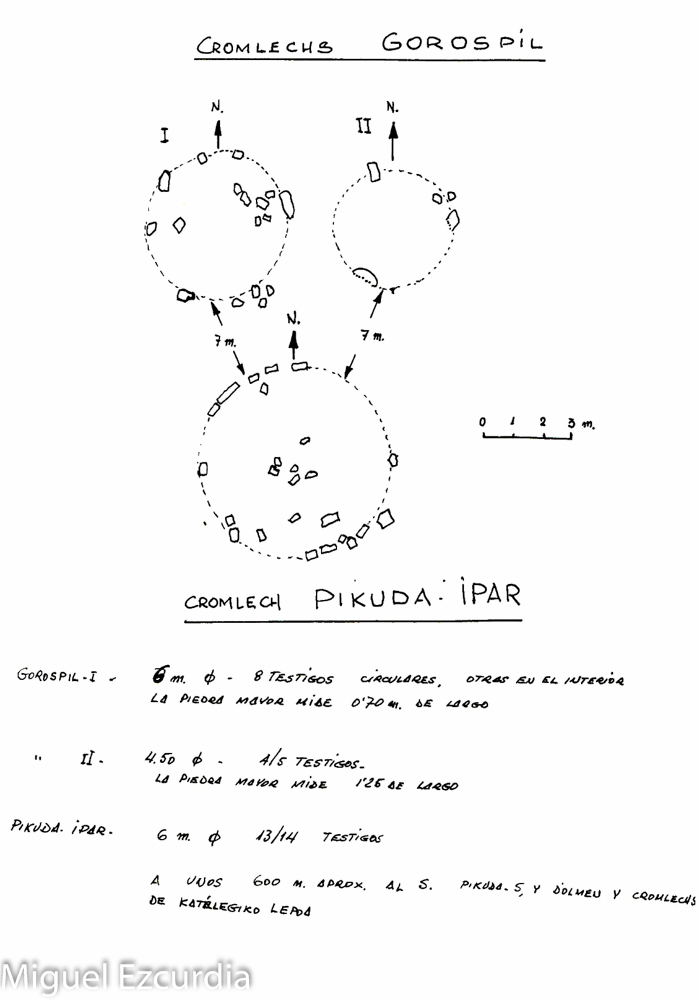 CROMLECHS GOROSPIL
N.
I
N.
II
7 m.
N.
7 m.
0 1 2 3 m.
CROMLECH PIKUDA-IPAR
GOROSPIL-I - 6 m. φ - 8 TESTIGOS CIRCULARES, OTRAS EN EL INTERIOR
LA PIEDRA MAYOR MIDE 0'70 m. DE LARGO
" II- 4.50 φ - 4/5 TESTIGOS-
LA PIEDRA MAYOR MIDE 1'25 DE LARGO
PIKUDA-IPAR- 6 m. φ 13/14 TESTIGOS
A UNOS 600 M. APROX. AL S. PIKUDA-S, Y DOLMEN Y CROMLECHS
DE KATÉLEGIKO LEPOA
Miguel Ezcurdia